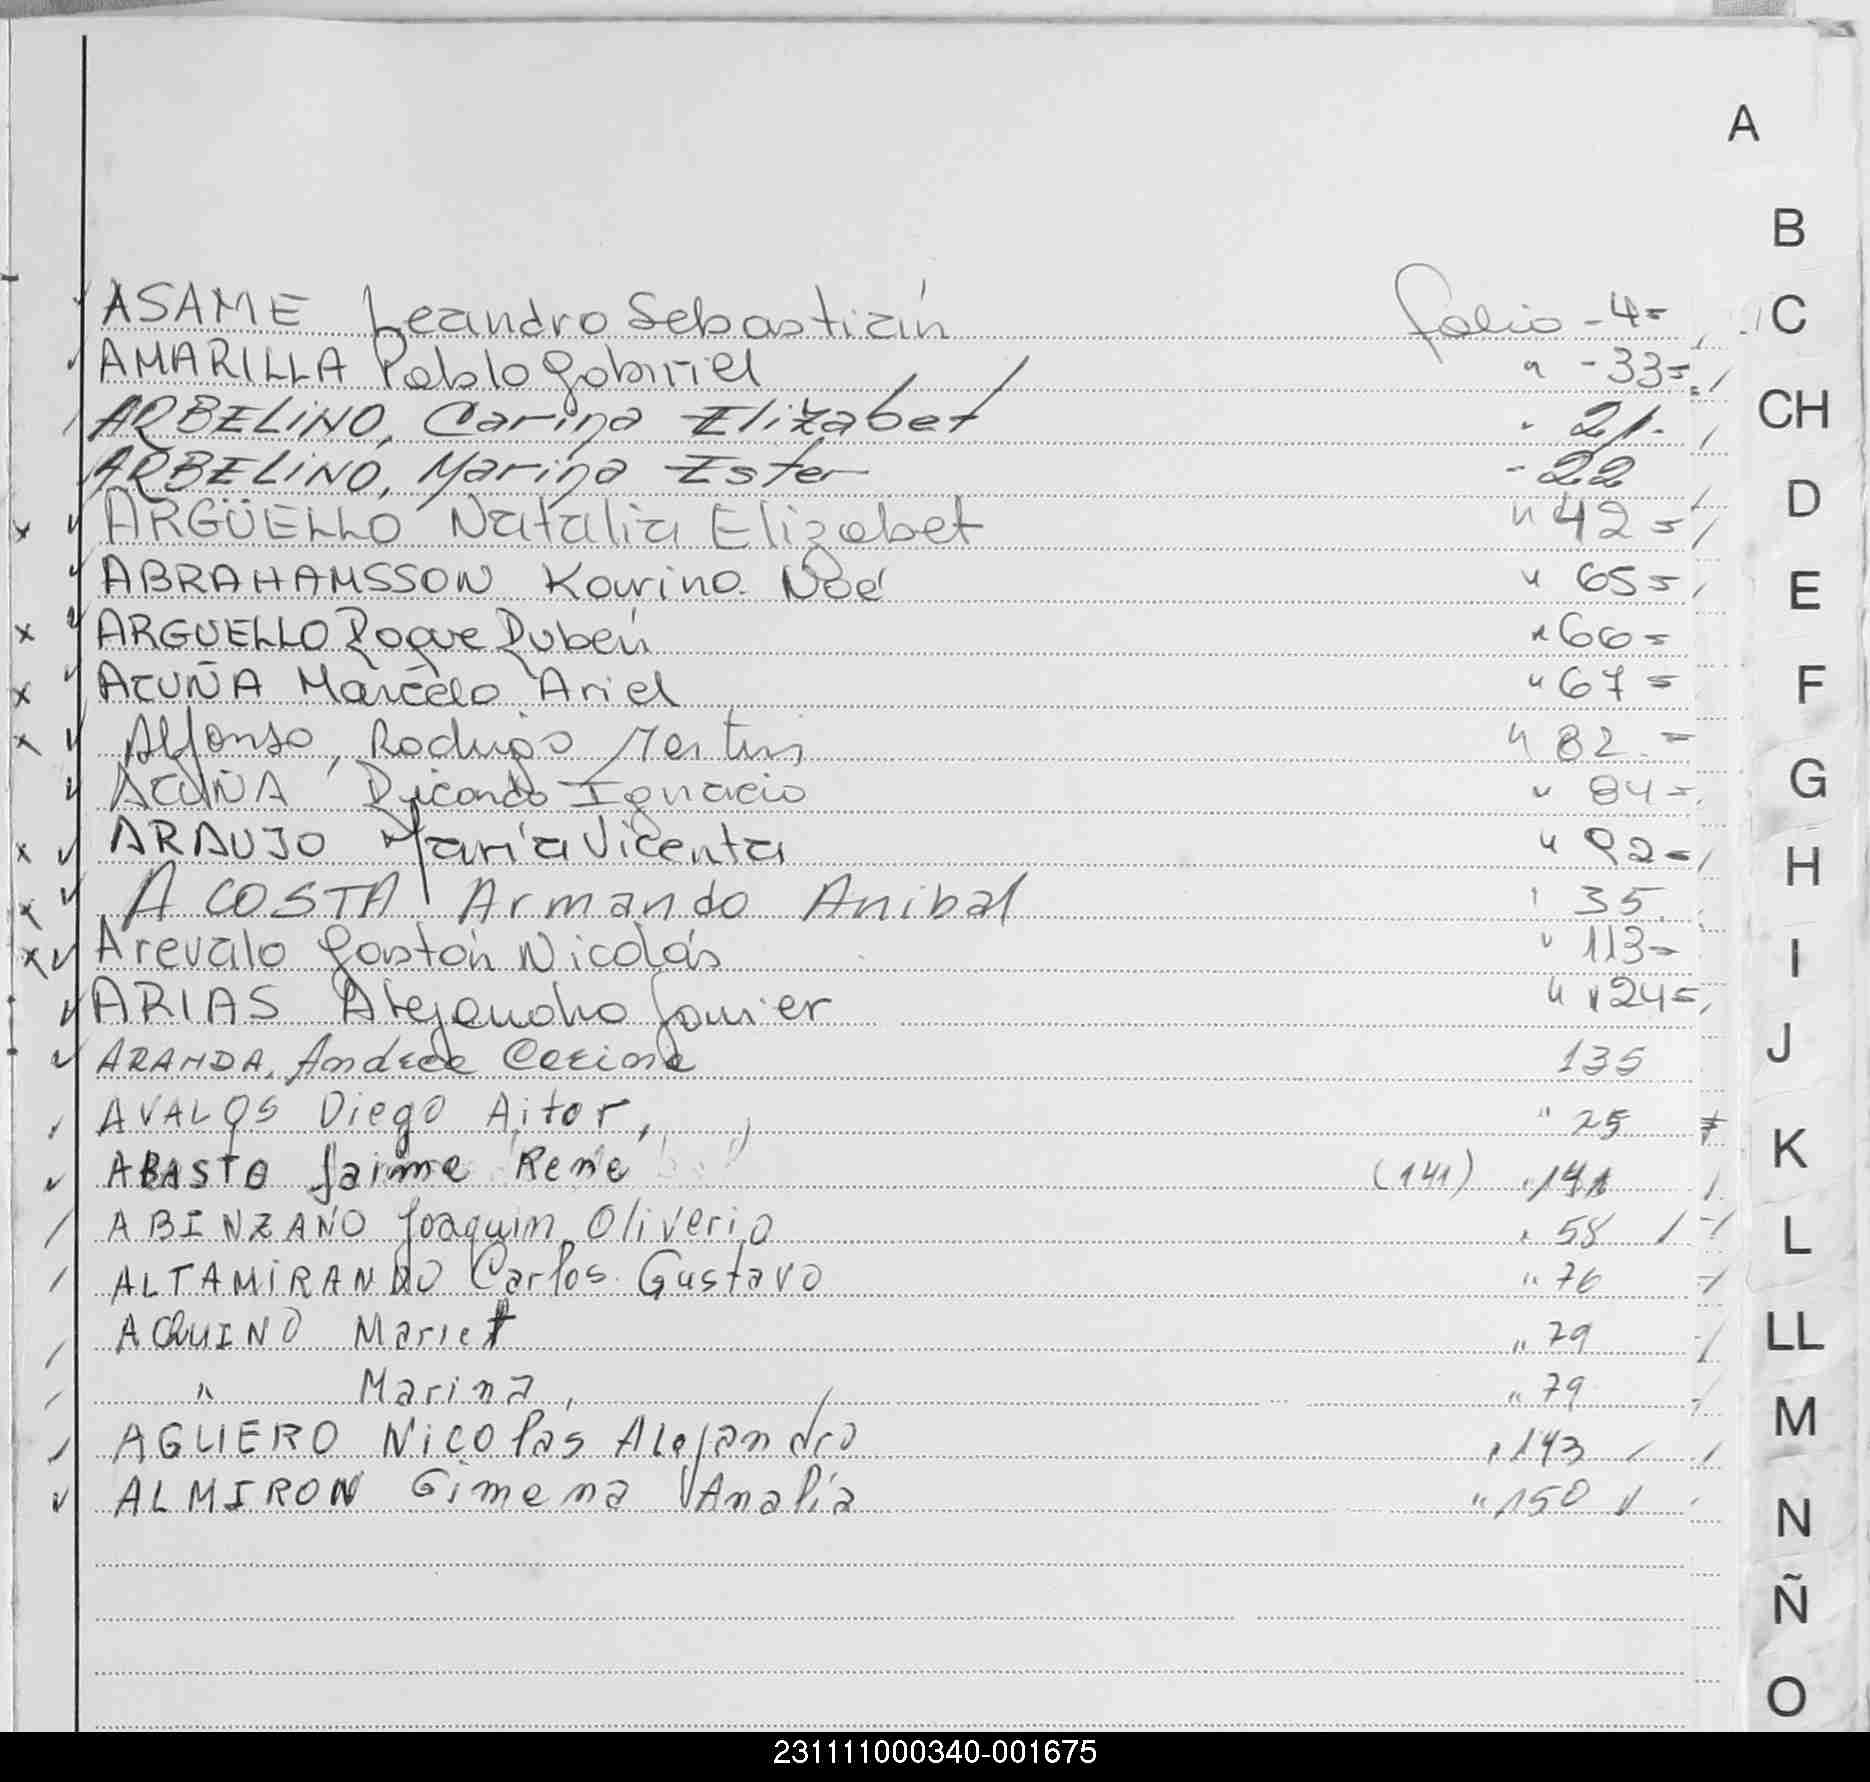 A
B
C
CH
D
E
F
G
H
I
J
K
L
LL
M
N
Ñ
O
ASAME Leandro Sebastián folio - 4=
AMARILLA Pablo Gabriel " - 33=
ARBELINO, Carina Elizabet " 21.
ARBELINO, Marina Ester - 22
ARGÜELLO Natalia Elizabet " 42=
ABRAHAMSSON Karina Noé " 65=
ARGUELLO Roque Rubén " 66=
ACUÑA Marcelo Ariel " 67=
Alfonso, Rodrigo Martin " 82.=
ACUÑA Ricardo Ignacio " 84=
ARAUJO María Vicenta " 92=
ACOSTA Armando Anibal " 35.
Arevalo Gastón Nicolás " 113=
ARIAS Alejandro Javier " 124=
ARANDA, Andrea Carina 135
AVALOS Diego Aitor, " 25
ABASTO Jaime Rene (141) " 141
ABINZANO Joaquim Oliverio " 58
ALTAMIRANDO Carlos Gustavo " 76
AQUINO Mariet " 79
" Marina, " 79
AGUERO Nicolas Alejandro " 143
ALMIRON Gimena Analía " 150
231111000340-001675